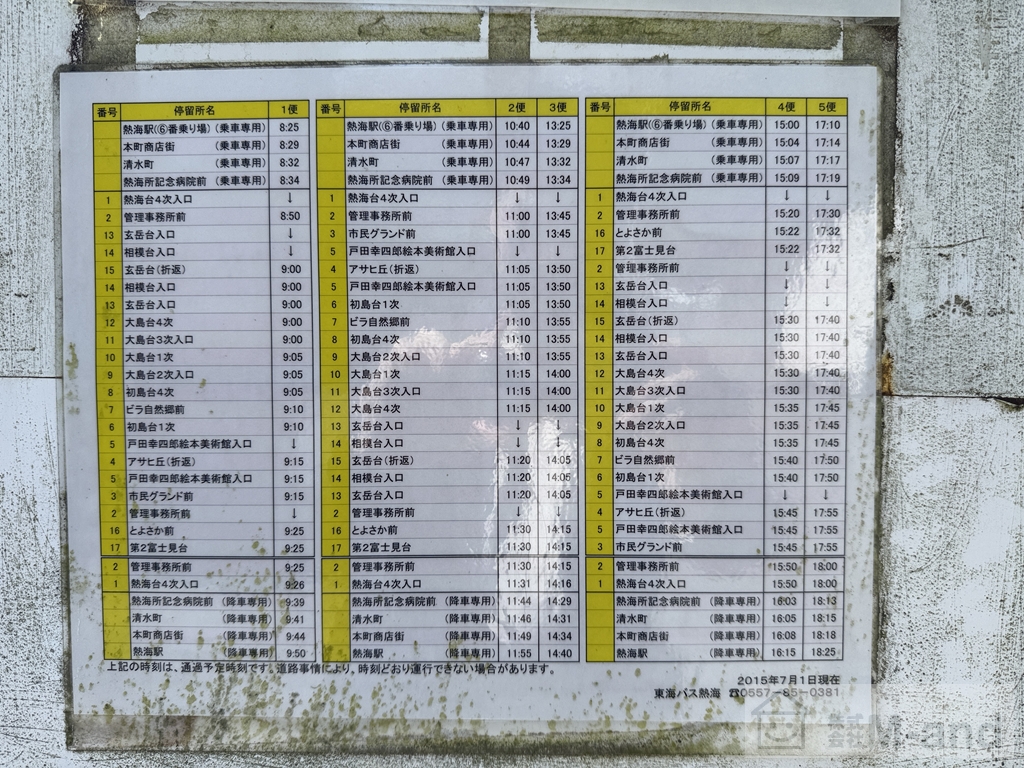 番号 停留所名 1便
熱海駅(⑥番乗り場)(乗車専用) 8:25
本町商店街 (乗車専用) 8:29
清水町 (乗車専用) 8:32
熱海所記念病院前 (乗車専用) 8:34
1 熱海台4次入口 ↓
2 管理事務所前 8:50
13 玄岳台入口 ↓
14 相模台入口 ↓
15 玄岳台(折返) 9:00
14 相模台入口 9:00
13 玄岳台入口 9:00
12 大島台4次 9:00
11 大島台3次入口 9:00
10 大島台1次 9:05
9 大島台2次入口 9:05
8 初島台4次 9:05
7 ビラ自然郷前 9:10
6 初島台1次 9:10
5 戸田幸四郎絵本美術館入口 ↓
4 アサヒ丘(折返) 9:15
5 戸田幸四郎絵本美術館入口 9:15
3 市民グランド前 9:15
2 管理事務所前 ↓
16 とよさか前 9:25
17 第2富士見台 9:25
2 管理事務所前 9:25
1 熱海台4次入口 9:26
熱海所記念病院前 (降車専用) 9:39
清水町 (降車専用) 9:41
本町商店街 (降車専用) 9:44
熱海駅 (降車専用) 9:50
番号 停留所名 2便 3便
熱海駅(⑥番乗り場)(乗車専用) 10:40 13:25
本町商店街 (乗車専用) 10:44 13:29
清水町 (乗車専用) 10:47 13:32
熱海所記念病院前 (乗車専用) 10:49 13:34
1 熱海台4次入口 ↓ ↓
2 管理事務所前 11:00 13:45
3 市民グランド前 11:00 13:45
5 戸田幸四郎絵本美術館入口 ↓ ↓
4 アサヒ丘(折返) 11:05 13:50
5 戸田幸四郎絵本美術館入口 11:05 13:50
6 初島台1次 11:05 13:50
7 ビラ自然郷前 11:10 13:55
8 初島台4次 11:10 13:55
9 大島台2次入口 11:10 13:55
10 大島台1次 11:15 14:00
11 大島台3次入口 11:15 14:00
12 大島台4次 11:15 14:00
13 玄岳台入口 ↓ ↓
14 相模台入口 ↓ ↓
15 玄岳台(折返) 11:20 14:05
14 相模台入口 11:20 14:05
13 玄岳台入口 11:20 14:05
2 管理事務所前 ↓ ↓
16 とよさか前 11:30 14:15
17 第2富士見台 11:30 14:15
2 管理事務所前 11:30 14:15
1 熱海台4次入口 11:31 14:16
熱海所記念病院前 (降車専用) 11:44 14:29
清水町 (降車専用) 11:46 14:31
本町商店街 (降車専用) 11:49 14:34
熱海駅 (降車専用) 11:55 14:40
番号 停留所名 4便 5便
熱海駅(⑥番乗り場)(乗車専用) 15:00 17:10
本町商店街 (乗車専用) 15:04 17:14
清水町 (乗車専用) 15:07 17:17
熱海所記念病院前 (乗車専用) 15:09 17:19
1 熱海台4次入口 ↓ ↓
2 管理事務所前 15:20 17:30
16 とよさか前 15:22 17:32
17 第2富士見台 15:22 17:32
2 管理事務所前 ↓ ↓
13 玄岳台入口 ↓ ↓
14 相模台入口 ↓ ↓
15 玄岳台(折返) 15:30 17:40
14 相模台入口 15:30 17:40
13 玄岳台入口 15:30 17:40
12 大島台4次 15:30 17:40
11 大島台3次入口 15:30 17:40
10 大島台1次 15:35 17:45
9 大島台2次入口 15:35 17:45
8 初島台4次 15:35 17:45
7 ビラ自然郷前 15:40 17:50
6 初島台1次 15:40 17:50
5 戸田幸四郎絵本美術館入口 ↓ ↓
4 アサヒ丘(折返) 15:45 17:55
5 戸田幸四郎絵本美術館入口 15:45 17:55
3 市民グランド前 15:45 17:55
2 管理事務所前 15:50 18:00
1 熱海台4次入口 15:50 18:00
熱海所記念病院前 (降車専用) 16:03 18:13
清水町 (降車専用) 16:05 18:15
本町商店街 (降車専用) 16:08 18:18
熱海駅 (降車専用) 16:15 18:25
上記の時刻は、通過予定時刻です。道路事情により、時刻どおり運行できない場合があります。
2015年7月1日現在
東海バス熱海 ☎0557-85-0381